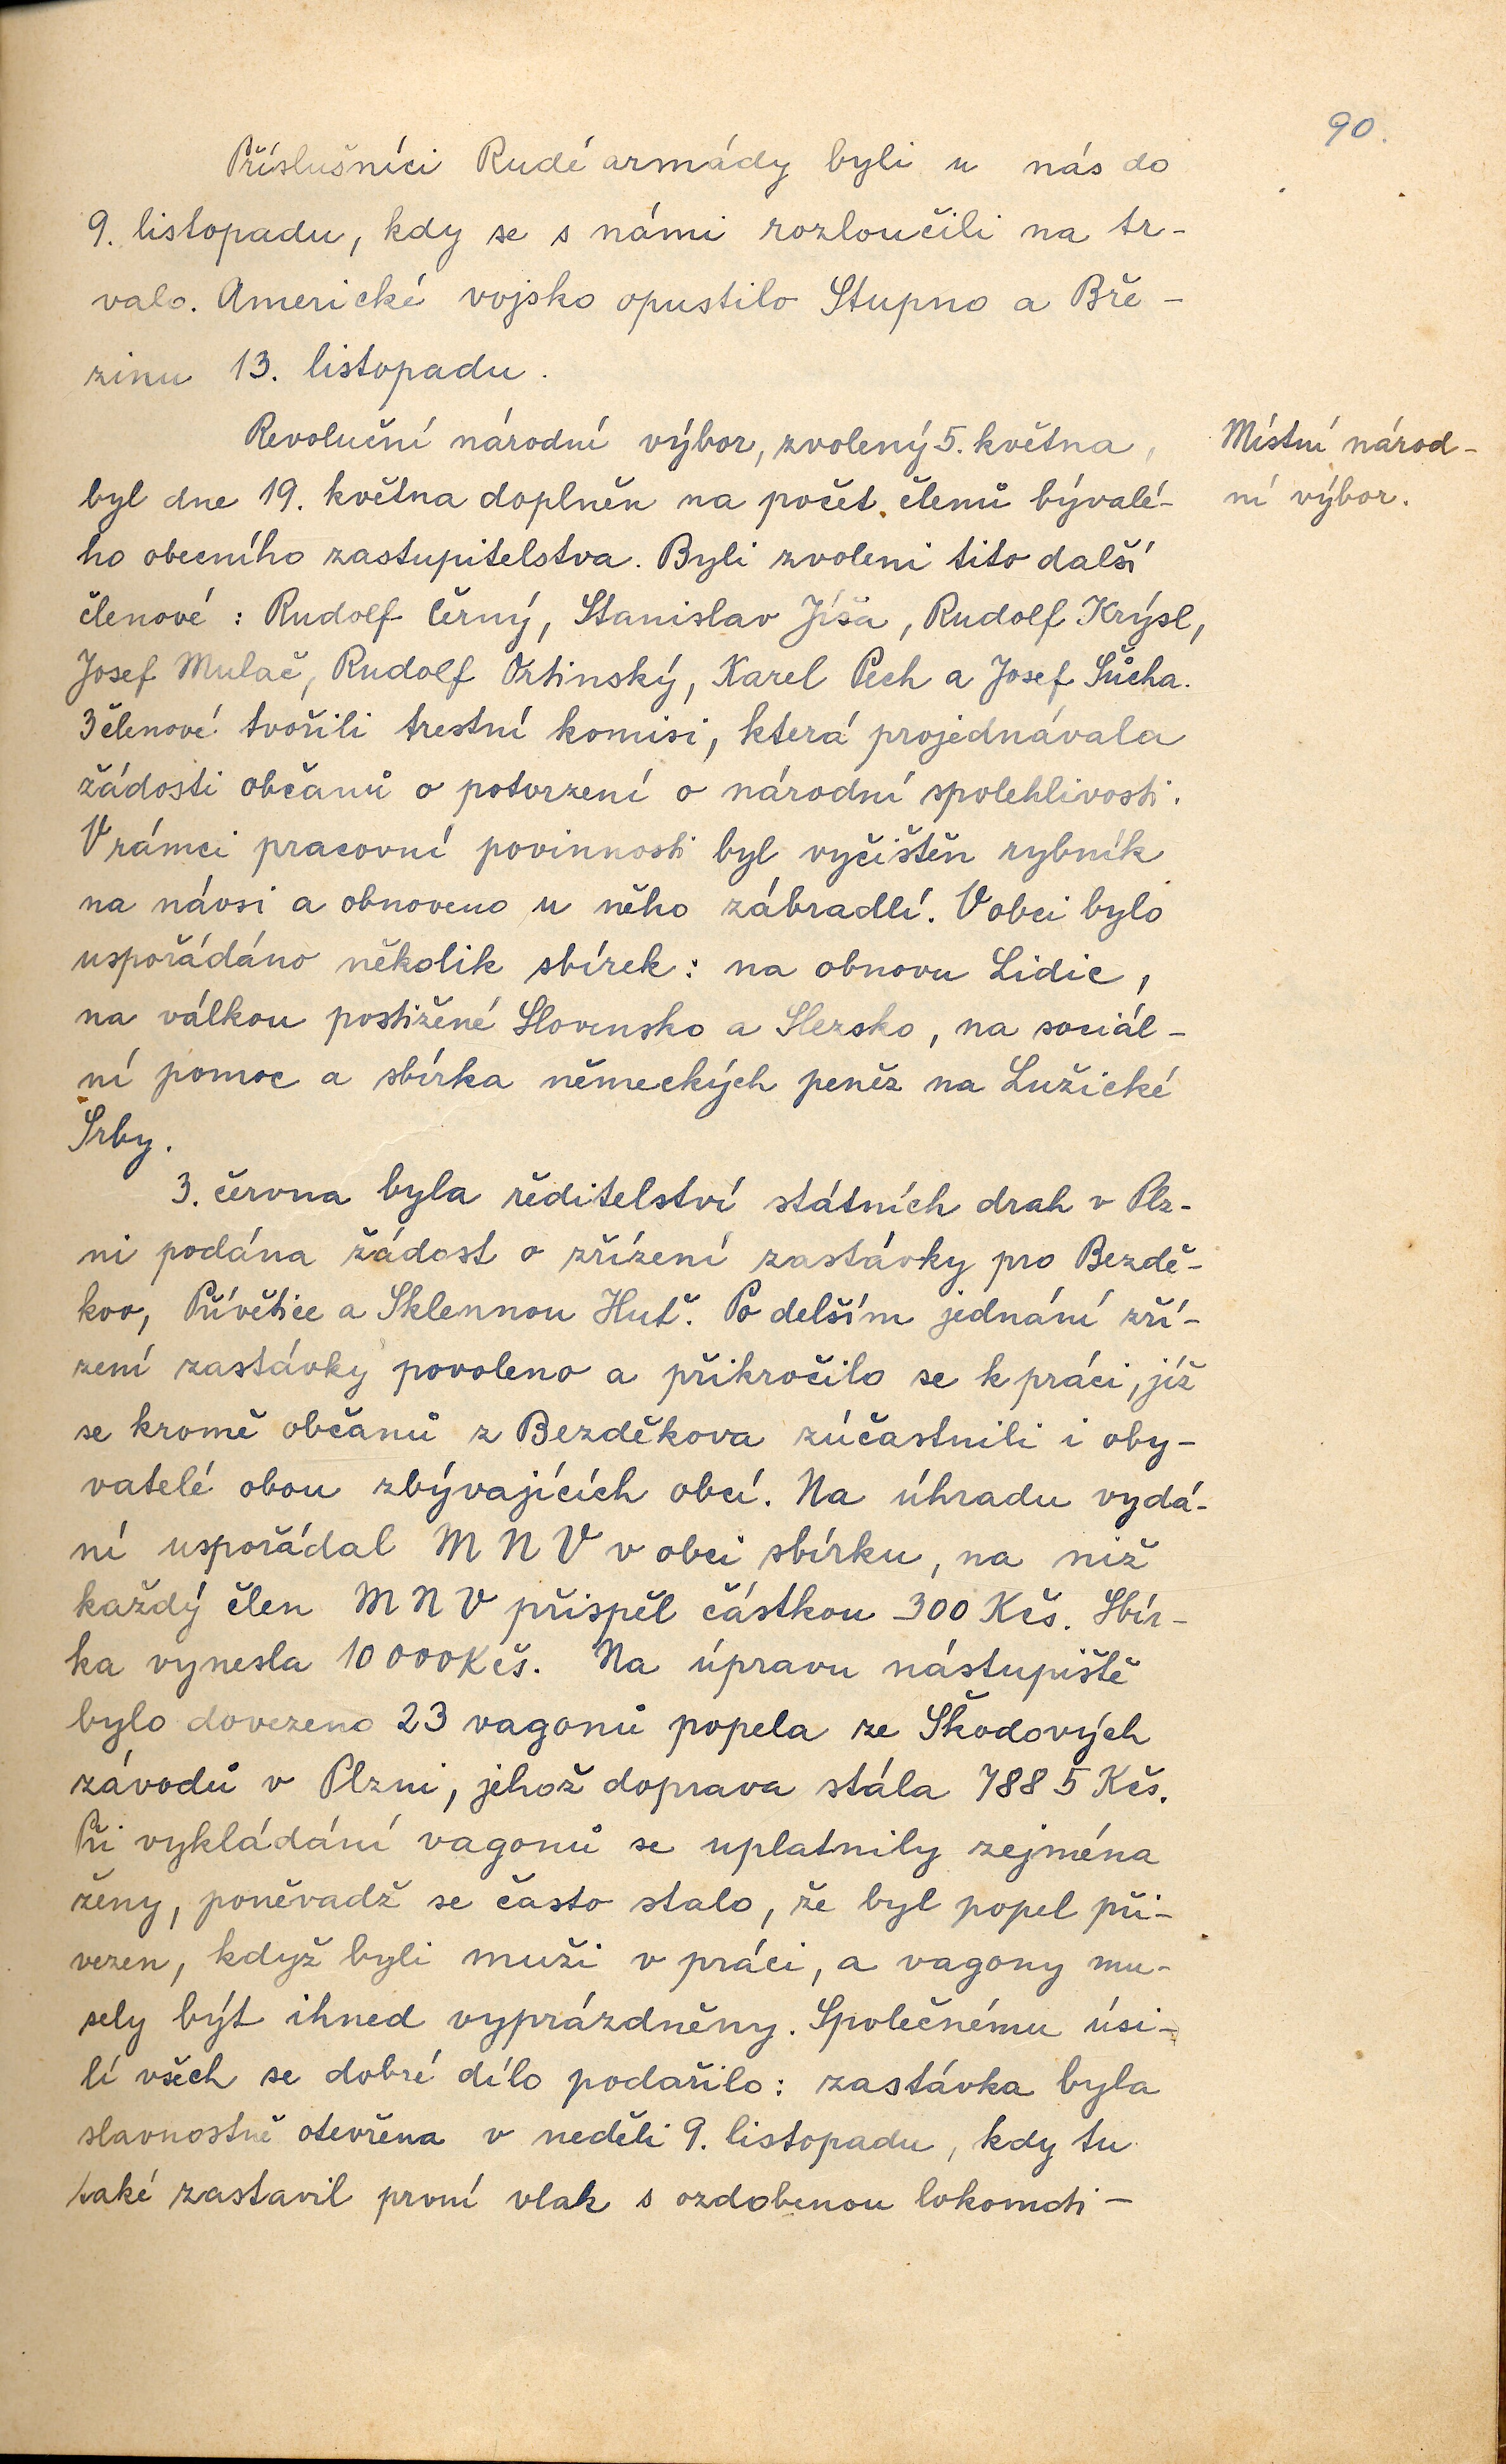 90.
Příslušníci Rudé armády byli u nás do
9. listopadu, kdy se s námi rozloučili na tr-
valo. Americké vojsko opustilo Stupno a Bře-
zinu 13. listopadu.
Revoluční národní výbor, zvolený 5. května,
Místní národ-
byl dne 19. května doplněn na počet členů bývalé-
ní výbor.
ho obecního zastupitelstva. Byli zvoleni tito další
členové: Rudolf Černý, Stanislav Jíša, Rudolf Krýsl,
Josef Mulač, Rudolf Ortinský, Karel Pech a Josef Sůcha.
3 členové tvořili trestní komisi, která projednávala
žádosti občanů o potvrzení o národní spolehlivosti.
V rámci pracovní povinnosti byl vyčištěn rybník
na návsi a obnoveno u něho zábradlí. V obci bylo
uspořádáno několik sbírek: na obnovu Lidic,
na válkou postižené Slovensko a Slezsko, na sociál-
ní pomoc a sbírka německých peněz na Lužické
Srby.
3. června byla ředitelství státních drah v Plz-
ni podána žádost o zřízení zastávky pro Bezdě-
kov, Přívětice a Sklennou Huť. Po delším jednání zří-
zení zastávky povoleno a přikročilo se k práci, jíž
se kromě občanů z Bezděkova zúčastnili i oby-
vatelé obou zbývajících obcí. Na úhradu vydá-
ní uspořádal MNV v obci sbírku, na niž
každý člen MNV přispěl částkou 300 Kčs. Sbír-
ka vynesla 10 000 Kčs. Na úpravu nástupiště
bylo dovezeno 23 vagonů popela ze Škodových
závodů v Plzni, jehož doprava stála 7885 Kčs.
Při vykládání vagonů se uplatnily zejména
ženy, poněvadž se často stalo, že byl popel při-
vezen, když byli muži v práci, a vagony mu-
sely být ihned vyprázdněny. Společnému úsi-
lí všech se dobré dílo podařilo: zastávka byla
slavnostně otevřena v neděli 9. listopadu, kdy tu
také zastavil první vlak s ozdobenou lokomoti-